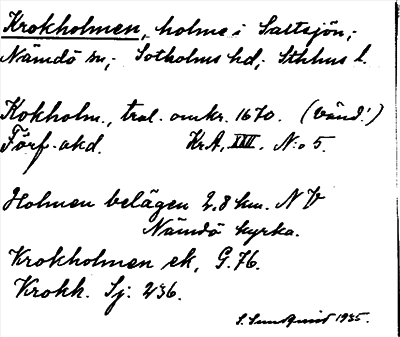 Krokholmen, holme i Saltsjön,;
Nämdö sn,; Sotholms hd; Sthlms l.
Kokholm., trol. omkr. 1670. (vänd!)
Förf. okd. Kr.A. XXII. N:o 5.
Holmen belägen 2,8 km. NV
Nämdö kyrka.
Krokholmen ek, G.76.
Krokh. Sj. 236.
S. Sundquist 1935.